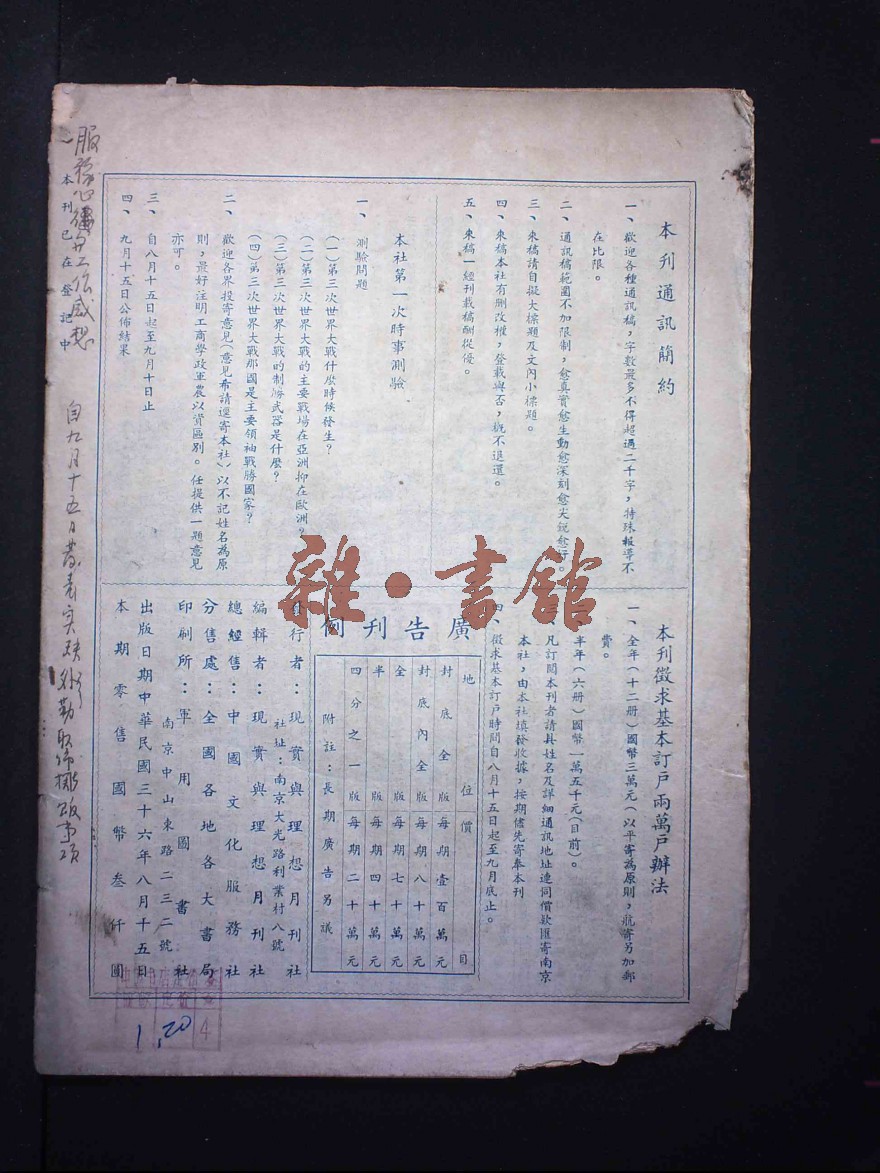 本刊通訊簡約
一、歡迎各種通訊稿，字數最多不得超過二千字，特殊報導不
在比限。
二、通訊稿範圍不加限制，愈真實愈生動愈深刻愈尖銳愈好。
三、來稿請自擬大標題及文內小標題。
四、來稿本社有刪改權，登載與否，概不退還。
五、來稿一經刊載稿酬從優。
本社第一次時事測驗
一、測驗問題
(一)第三次世界大戰什麼時候發生？
(二)第三次世界大戰的主要戰場在亞洲抑在歐洲？
(三)第三次世界大戰的制勝武器是什麼？
(四)第三次世界大戰那國是主要領袖戰勝國家？
二、歡迎各界投寄意見(意見希請逕寄本社)以不記姓名為原
則，最好注明工商學政軍農以資區別。任提供一題意見
亦可。
三、自八月十五日起至九月十日止
四、九月十五日公佈結果
本刊已在登記中
本刊徵求基本訂戶兩萬戶辦法
一、全年(十二冊)國幣三萬元(以平寄為原則，航寄另加郵
費。
半年(六冊)國幣一萬五千元(目前)。
凡訂閱本刊者請具姓名及詳細通訊地址連同價款匯寄南京
本社，由本社填發收據，按期儘先寄奉本刊
四、徵求基本訂戶時間自八月十五日起至九月底止。
廣告刊例
地位價目
封底全版每期壹百萬元
封底內全版每期八十萬元
全版每期七十萬元
半版每期四十萬元
四分之一版每期二十萬元
附註：長期廣告另議
發行者：現實與理想月刊社
社址：南京大光路利業村八號
編輯者：現實與理想月刊社
總經售：中國文化服務社
分售處：全國各地各大書局
印刷所：軍用圖書社
南京中山東路二三二號
出版日期中華民國三十六年八月十五日
本期零售國幣叁仟圓
自九月十五日
1.20
4
雜·書館